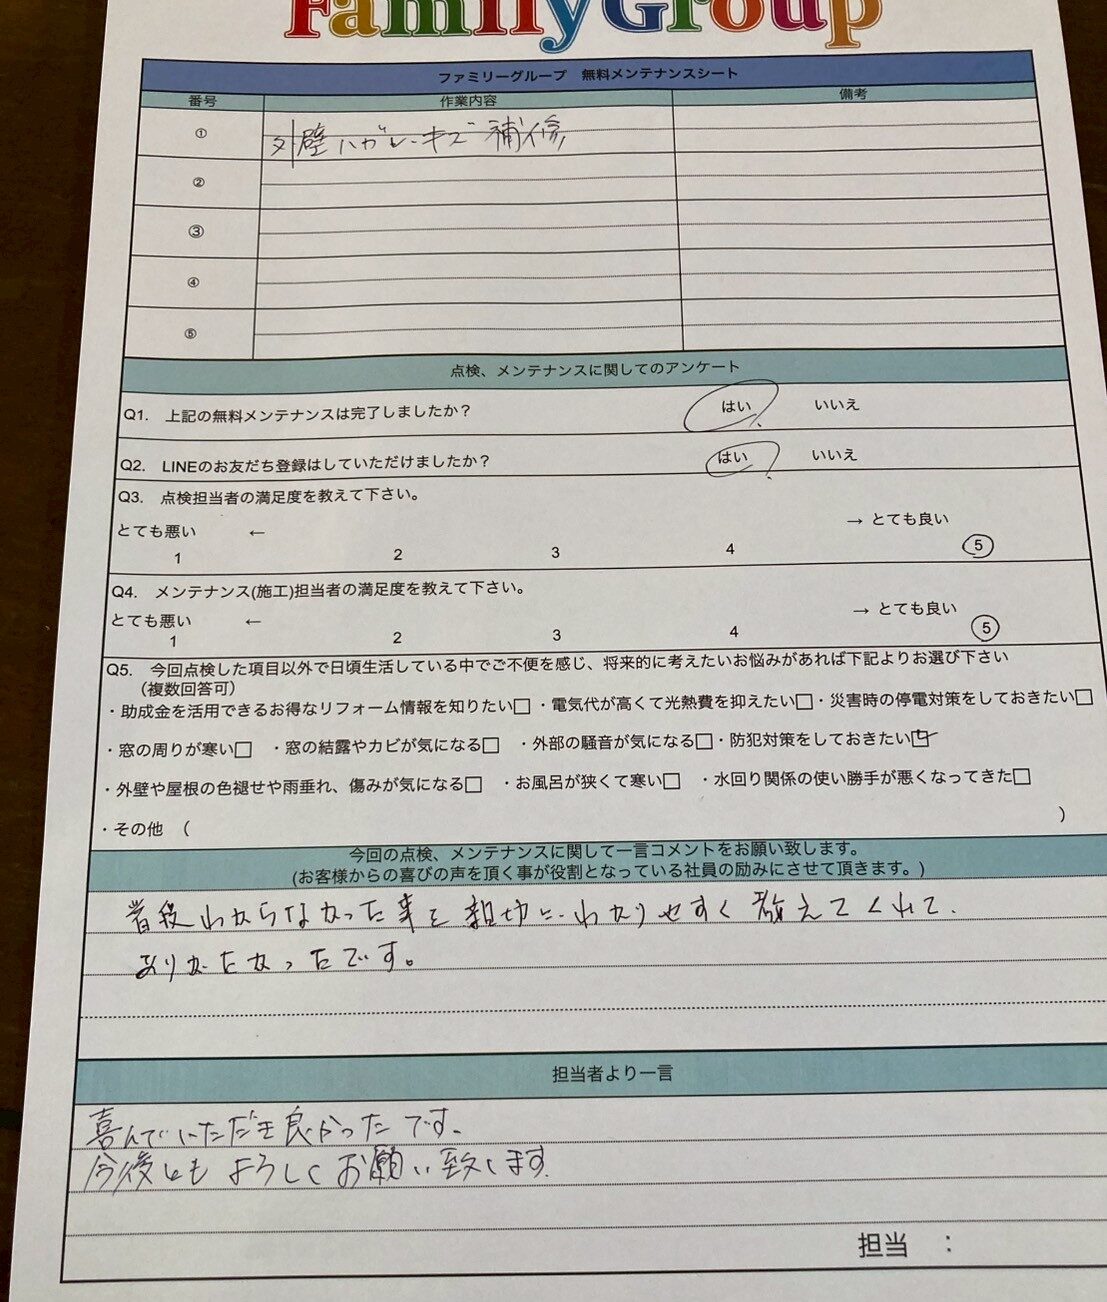 FamilyGroup
ファミリーグループ　無料メンテナンスシート
番号 作業内容 備考
① 外壁ハガレ・キズ補修
②
③
④
⑤
点検、メンテナンスに関してのアンケート
Q1.　上記の無料メンテナンスは完了しましたか？ はい いいえ
Q2.　LINEのお友だち登録はしていただけましたか？ はい いいえ
Q3.　点検担当者の満足度を教えて下さい。
とても悪い ← → とても良い
1 2 3 4 5
Q4.　メンテナンス(施工)担当者の満足度を教えて下さい。
とても悪い ← → とても良い
1 2 3 4 5
Q5.　今回点検した項目以外で日頃生活している中でご不便を感じ、将来的に考えたいお悩みがあれば下記よりお選び下さい
（複数回答可）
・助成金を活用できるお得なリフォーム情報を知りたい□ ・電気代が高くて光熱費を抑えたい□ ・災害時の停電対策をしておきたい□
・窓の周りが寒い□ ・窓の結露やカビが気になる□ ・外部の騒音が気になる□ ・防犯対策をしておきたい☑
・外壁や屋根の色褪せや雨垂れ、傷みが気になる□ ・お風呂が狭くて寒い□ ・水回り関係の使い勝手が悪くなってきた□
・その他　(　　　)
今回の点検、メンテナンスに関して一言コメントをお願い致します。
(お客様からの喜びの声を頂く事が役割となっている社員の励みにさせて頂きます。)
普段わからなかった事を親切に、わかりやすく教えてくれて、
ありがたかったです。
担当者より一言
喜んでいただき良かったです。
今後ともよろしくお願い致します
担当　：